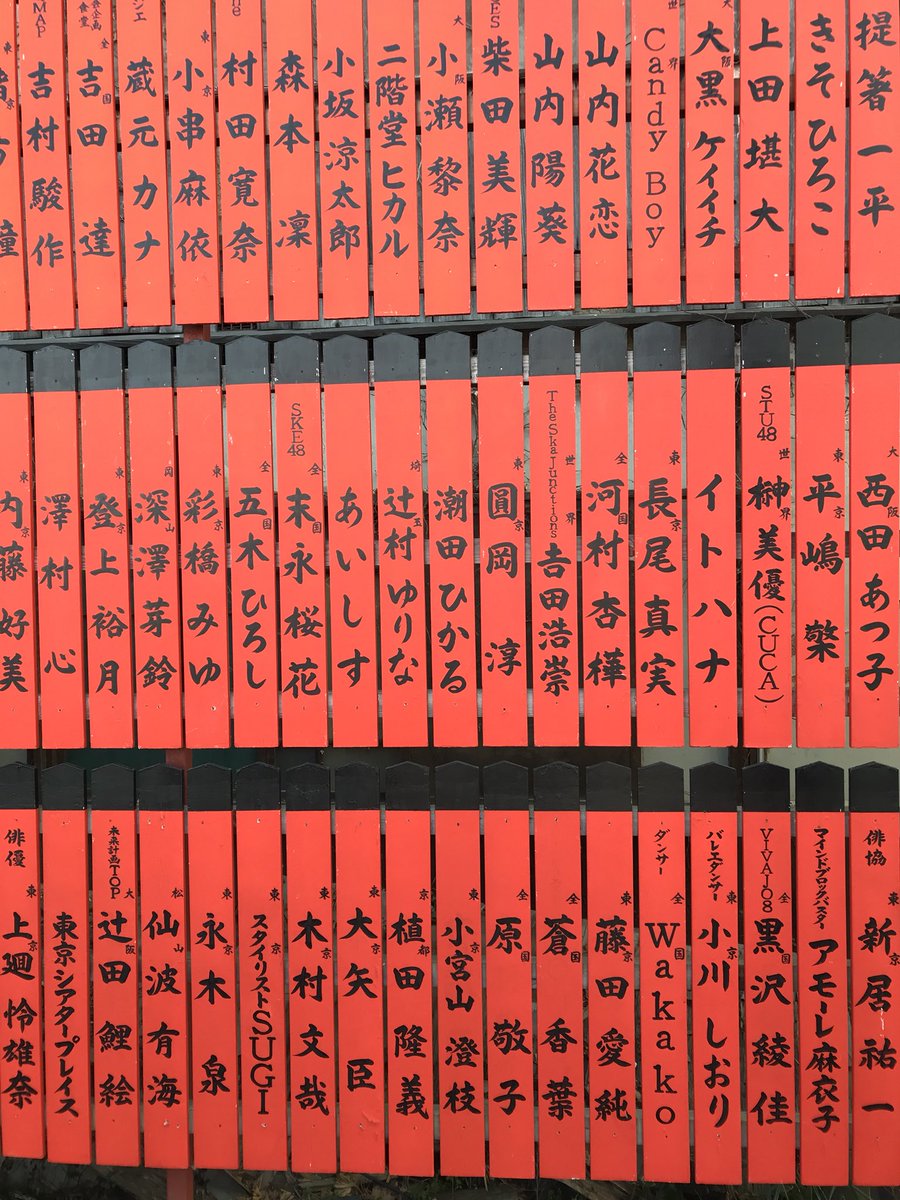 提箸一平
きそひろこ
上田堪大
大阪 大黒ケイイチ
世界 Candy Boy
山内花恋
山内陽葵
柴田美輝
大阪 小瀬黎奈
二階堂ヒカル
小坂涼太郎
森本凜
村田寛奈
東京 小串麻依
蔵元カナ
全国 吉田達
吉村駿作
大阪 西田あつ子
東京 平嶋檠
STU48 世界 榊美優(CUCA)
イトハナ
東京 長尾真実
全国 河村杏樺
TheSkaJunctions 世界 吉田浩崇
東京 圓岡淳
潮田ひかる
埼玉 辻村ゆりな
あいしす
SKE48 全国 末永桜花
全国 五木ひろし
東京 彩橋みゆ
岡山 深澤芽鈴
東京 登上裕月
澤村心
東京 内藤好美
俳協 東京 新居祐一
マインドブロックバスター アモーレ麻衣子
VIVAJO8 全国 黒沢綾佳
バレエダンサー 東京 小川しおり
ダンサー 全国 Wakako
東京 藤田愛純
全国 蒼香葉
全国 原敬子
東京 小宮山澄枝
京都 植田隆義
東京 大矢臣
東京 木村文哉
スタイリストSUGI
東京 永木泉
松山 仙波有海
未来計画TOP 大阪 辻田鯉絵
東京シアタープレイス
俳優 東京 上廻怜雄奈